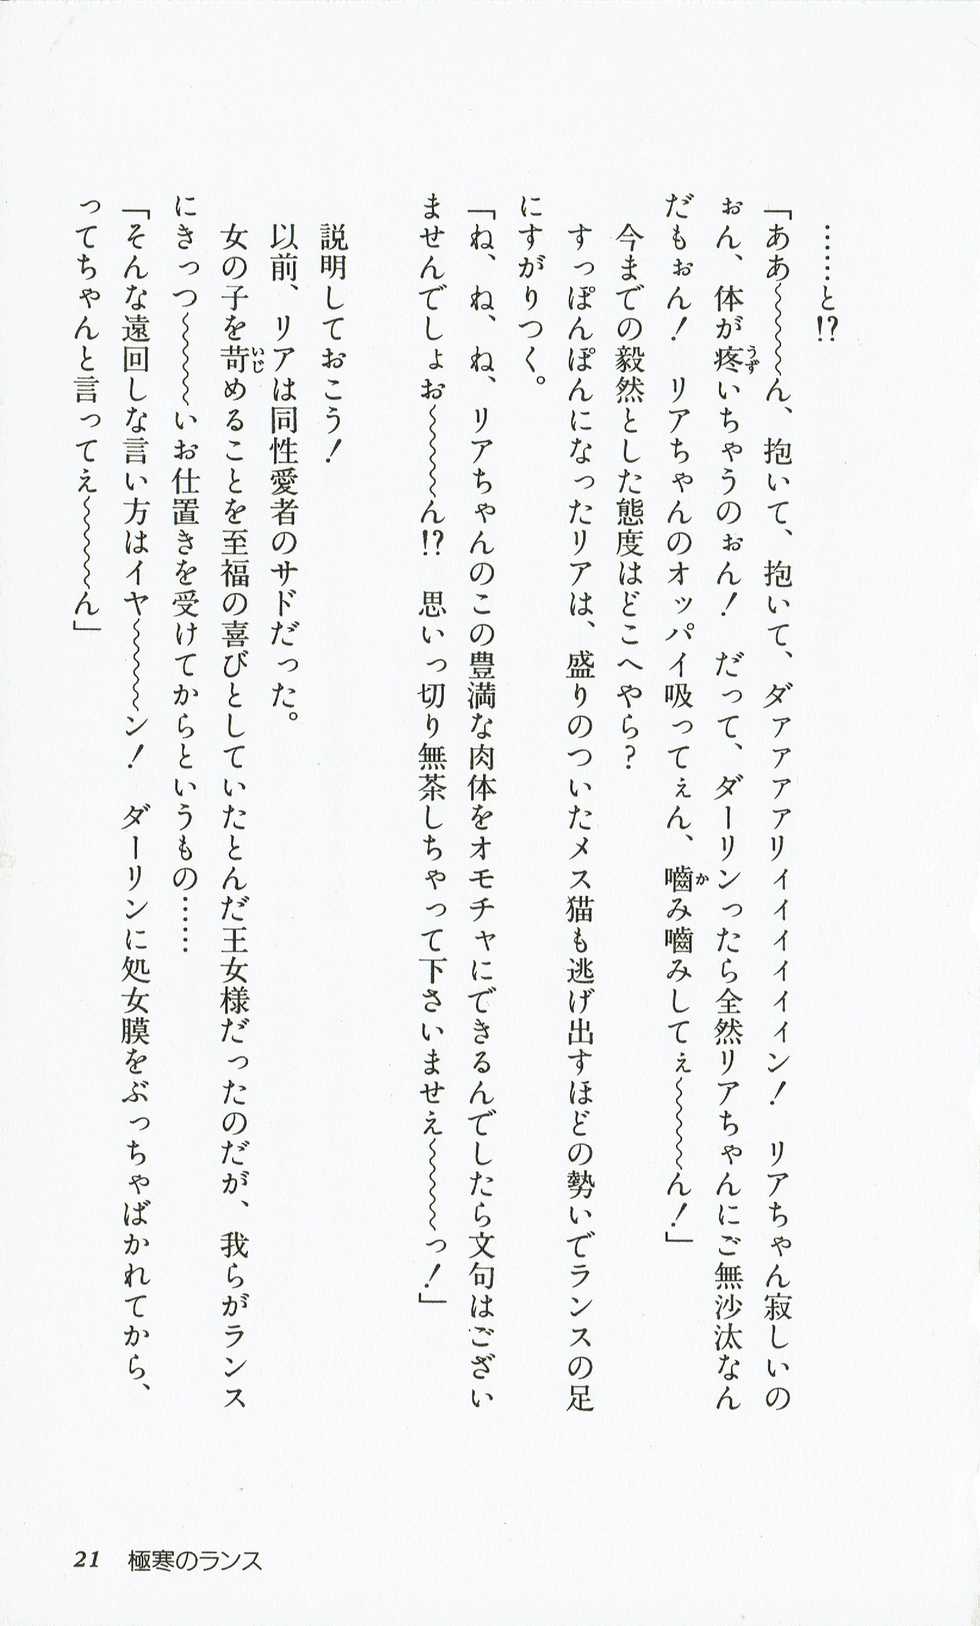 ……と!?
「ああ～～～～ん、抱いて、抱いて、ダァァァァリィィィィィィン！　リアちゃん寂しいの
ぉん、体が疼いちゃうのぉん！　だって、ダーリンったら全然リアちゃんにご無沙汰なん
だもぉん！　リアちゃんのオッパイ吸ってぇん、嚙み嚙みしてぇ～～～～ん！」
今までの毅然とした態度はどこへやら？
すっぽんぽんになったリアは、盛りのついたメス猫も逃げ出すほどの勢いでランスの足
にすがりつく。
「ね、ね、ね、リアちゃんのこの豊満な肉体をオモチャにできるんでしたら文句はござい
ませんでしょお～～～～ん!?　思いっ切り無茶しちゃって下さいませえ～～～～っ！」
説明しておこう！
以前、リアは同性愛者のサドだった。
女の子を苛めることを至福の喜びとしていたとんだ王女様だったのだが、我らがランス
にきっつ～～～～いお仕置きを受けてからというもの……
「そんな遠回しな言い方はイヤ～～～～ン！　ダーリンに処女膜をぶっちゃばかれてから、
ってちゃんと言ってえ～～～～ん」
21　極寒のランス